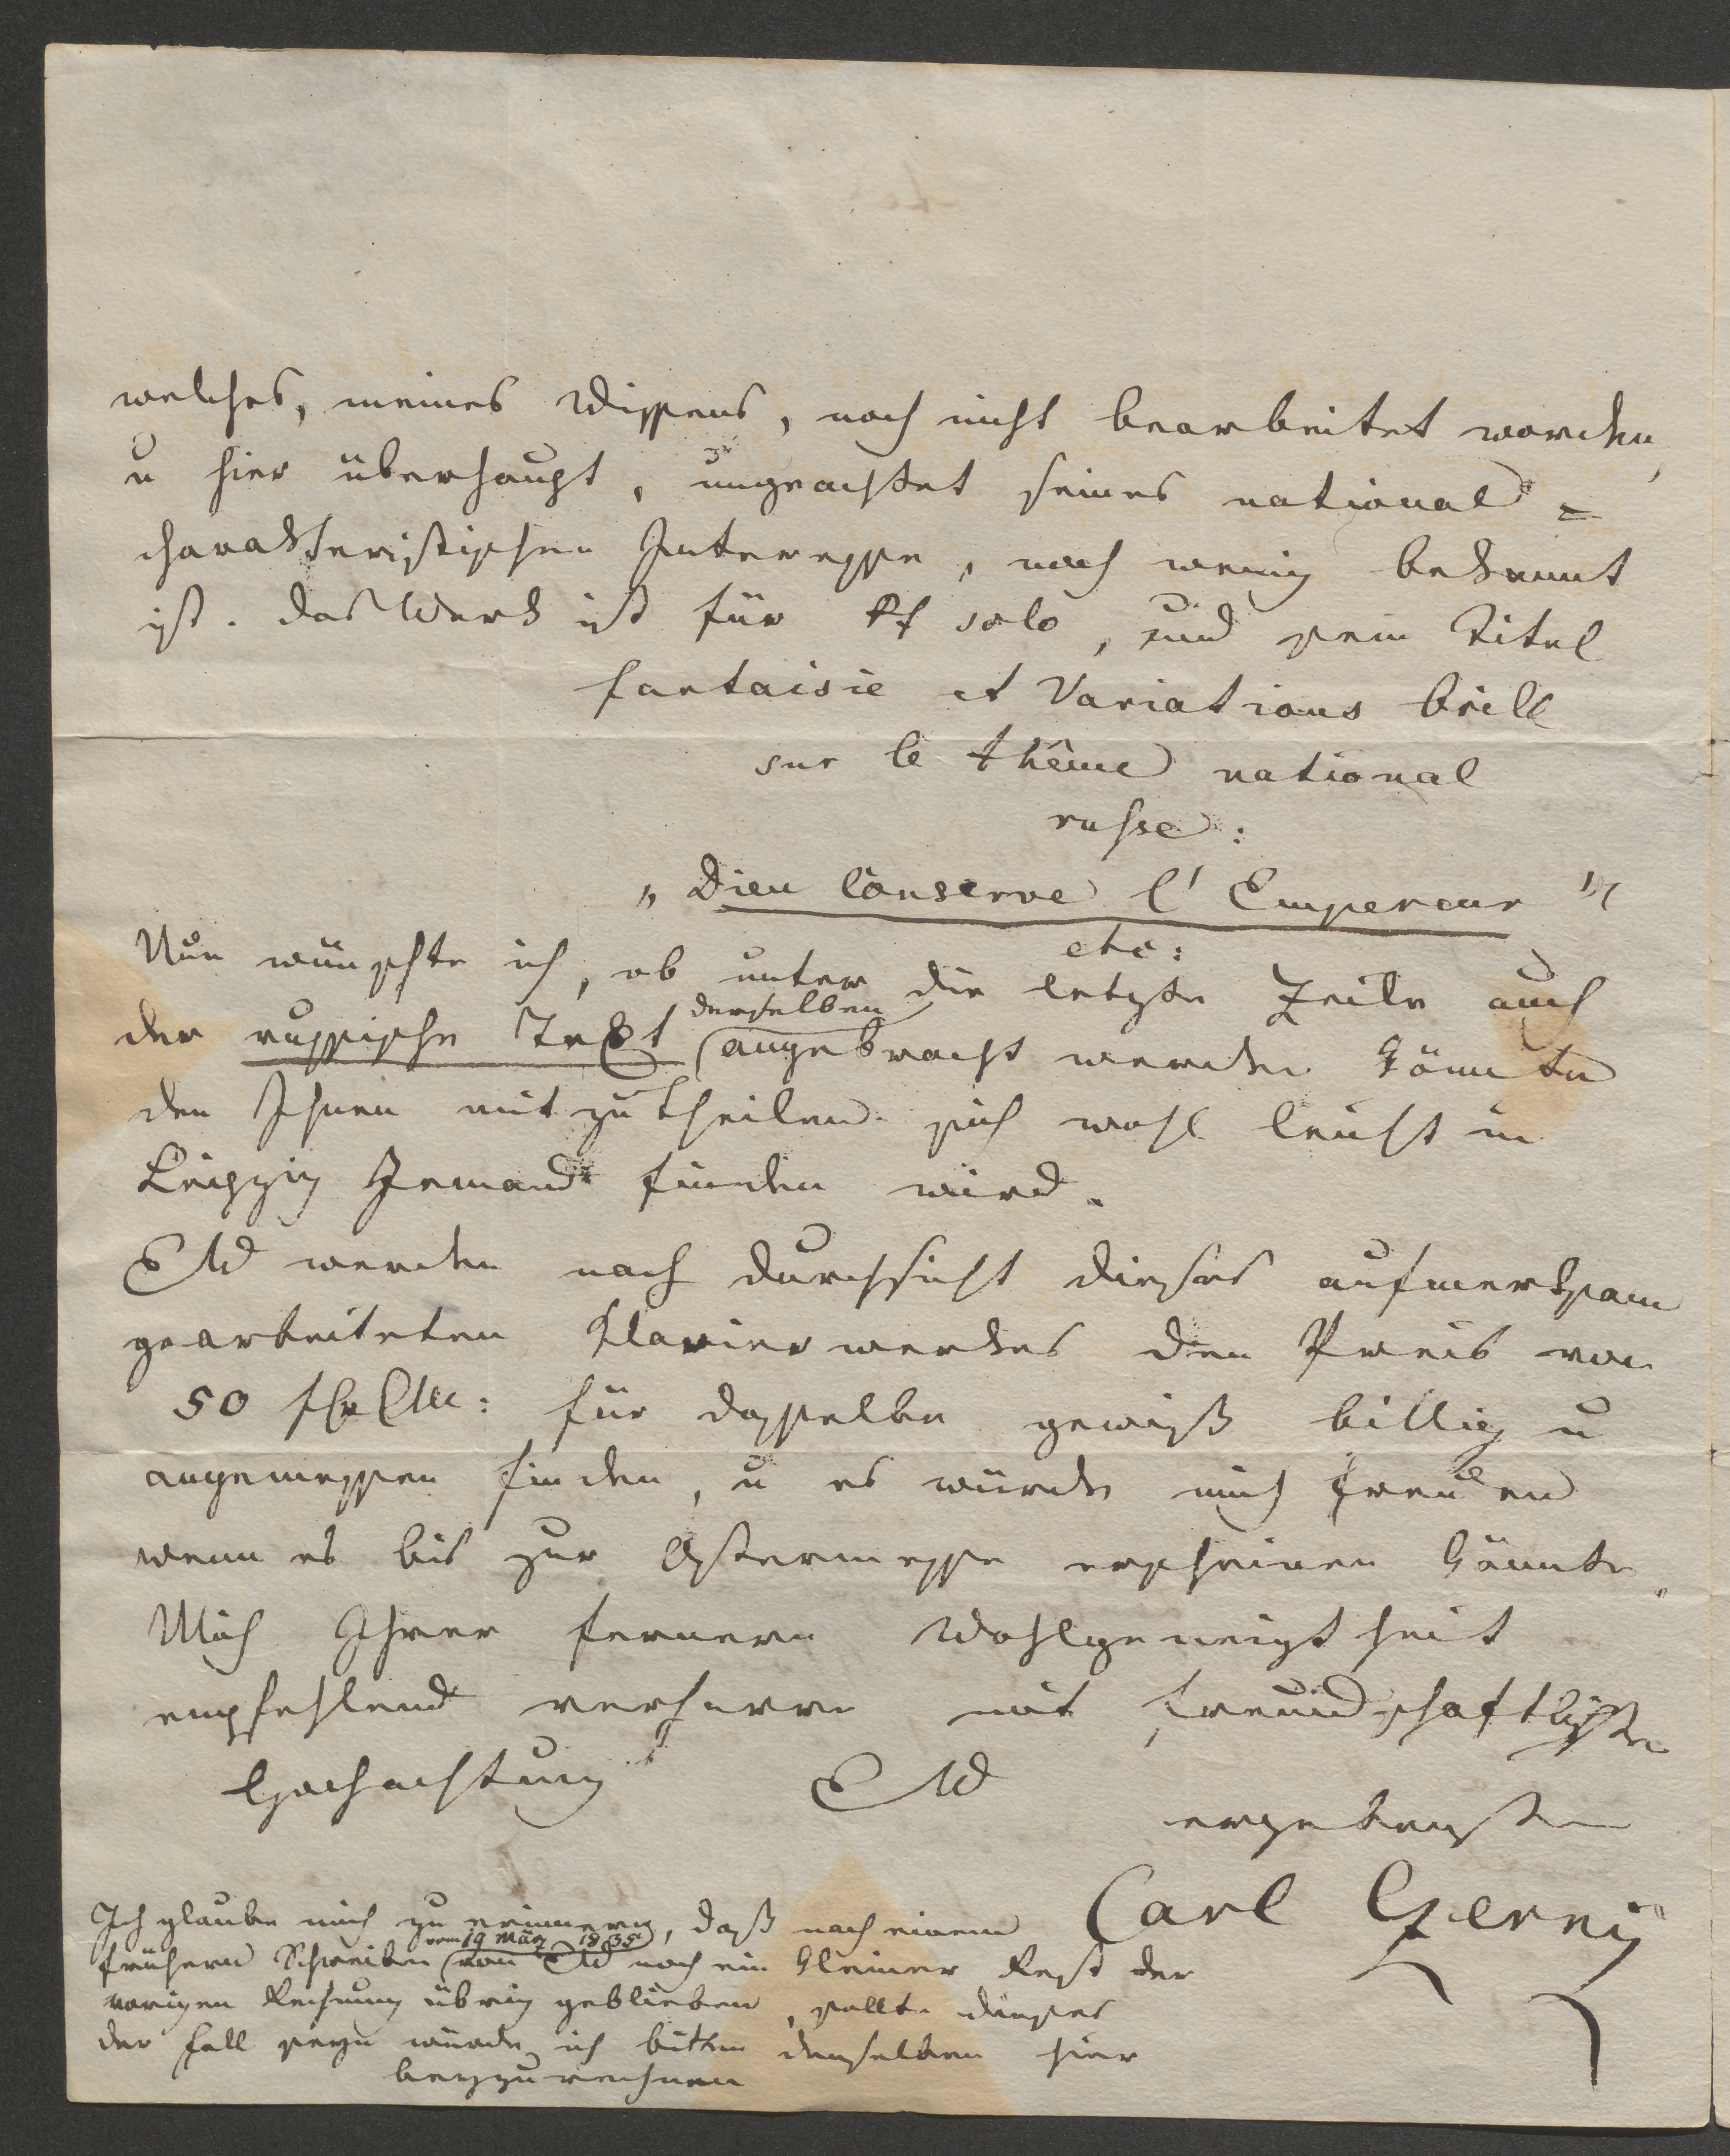 welches, meines Wissens, noch nicht bearbeitet worden,
u hier überhaupt, ungeachtet seines national=
charakteristischen Interesse, noch wenig bekannt
ist. das Werk ist für Pf solo, und sein Titel
fantaisie et Variations brill
sur le thême national
russe:
„Dieu conserve l'Empereur"
etc:
Nun wünschte ich, ob unter die letzte Zeile auch
derselben
der russische Text angebracht werden könnte
den Ihnen mitzutheilen sich wohl leicht in
Leipzig Jemand finden wird.
EW werden nach Durchsicht dieses aufmerksam
gearbeiteten Klavierwerkes den Preis von
50 CM: für dasselbe gewiß billig u
angemessen finden, u es würde mich freuen
wenn es bis zur Ostermesse erscheinen könnte.
Mich Ihrer fernern Wohlgeneigtheit
empfehlend verharre mit freundschaftlichster
Hochachtung EW
ergebenster
Carl Czerny
Ich glaube mich zu erinnern, daß nach einem
vom 19 März 1835
frühern Schreiben von EW noch ein kleiner Rest der
vorigen Rechnung übrig geblieben, sollte dieses
der Fall seyn würde ich bitten denselben hier
beyzurechnen